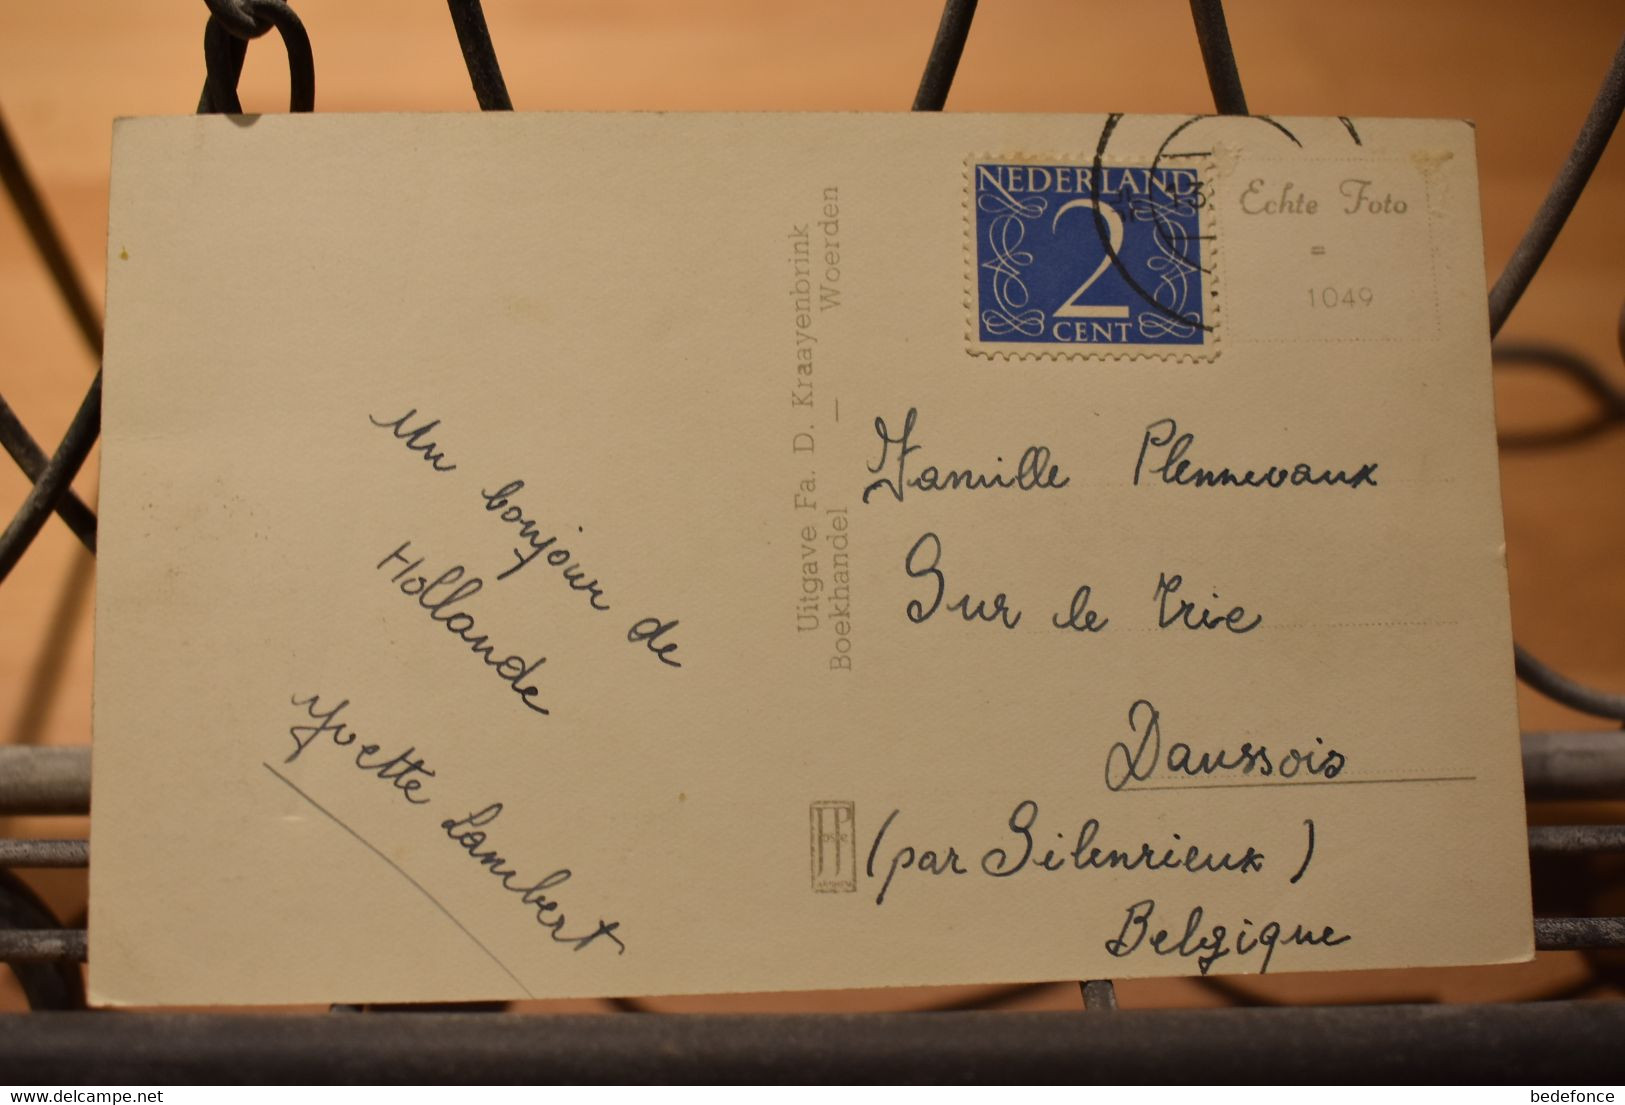 Un bonjour de
Hollande
Yvette Lambert
Uitgave Fa. D. Kraayenbrink
Boekhandel — Woerden
NEDERLAND
2
CENT
13
Echte Foto
=
1049
Famille Plennevaux
Sur le Trie
Daussois
(par Silenrieux)
Belgique
delcampe.net
bedefonce